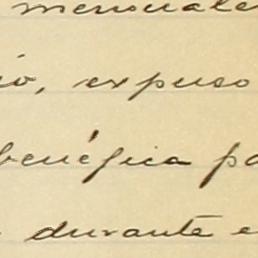 mensuale
io, expuso
benéfica pa
durante e